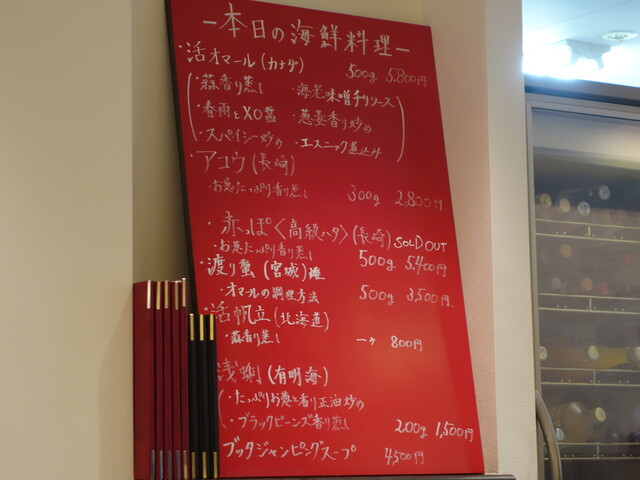 ー本日の海鮮料理ー
・活オマール(カナダ) 500g 5,800円
・蒜香り蒸し ・海老味噌チリソース
・春雨とXO醤 ・葱姜香り炒め
・スパイシー炒め ・エスニック煮込み
・アコウ(長崎)
・お葱たっぷり香り蒸し 300g 2,800円
・赤っぽ〈高級ハタ〉(長崎) SOLD OUT
・お葱たっぷり香り蒸し 500g 5,400円
渡り蟹(宮城)雄
・オマールの調理方法 500g 3,500円
・活帆立(北海道)
・蒜香り蒸し 一ヶ 800円
浅蜊(有明海)
・たっぷりお葱と香り正油炒め
・ブラックビーンズ香り蒸し 200g 1,500円
ブッダジャンピングスープ 4,500円